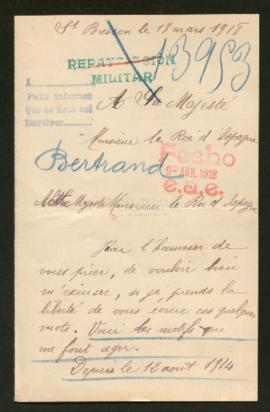 St Bresson le 17 mars 1918
13953
REPATRIACION
MILITAR
A
Pedir informes
Que se Haga
Devolver
A Sa Majesté
Monsieur le Roi d'Espagne
Fecho
9 ABR. 1918
e.a.e.
Bertrand
A Sa Majesté Monsieur le Roi d'Espagne
J'ai l'honneur de
vous prier, de vouloir bien
m'excuser, si je prends la
liberté de vous écrire ces quelques
mots. Voici les motifs que
me font agir.
Depuis le 12 août 1914